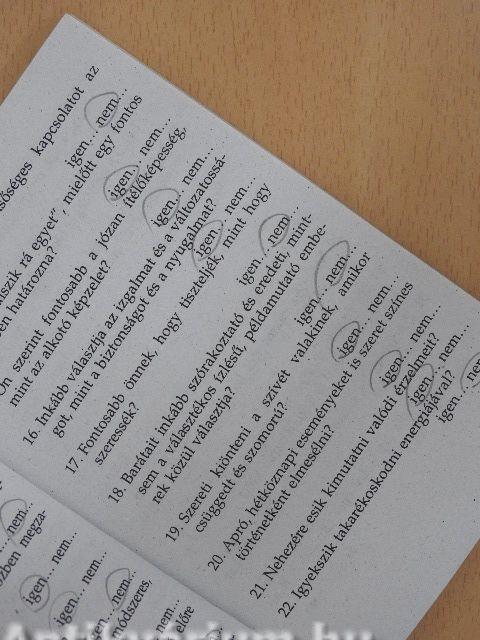 kapcsolatot az
igen... nem...
rá egyet", mielőtt egy fontos
határozna? igen... nem...
Ön szerint fontosabb a józan ítélőképesség,
mint az alkotó képzelet? igen... nem...
16. Inkább választja az izgalmat és a változatossá-
got, mint a biztonságot és a nyugalmat? igen... nem...
17. Fontosabb önnek, hogy tiszteljék, mint hogy
szeressék? igen... nem...
18. Barátait inkább szórakoztató és eredeti, mint-
sem a választékos ízlésű, példamutató embe-
rek közül választja? igen... nem...
19. Szereti kiönteni a szívét valakinek, amikor
csüggedt és szomorú? igen... nem...
20. Apró, hétköznapi eseményeket is szeret színes
történetként elmesélni? igen... nem...
21. Nehezére esik kimutatni valódi érzelmeit? igen... nem...
22. Igyekszik takarékoskodni energiájával? igen... ne
nem...
megza-
igen... nem...
igen... nem...
nem...
módszeres,
előre
Antikvarium.hu